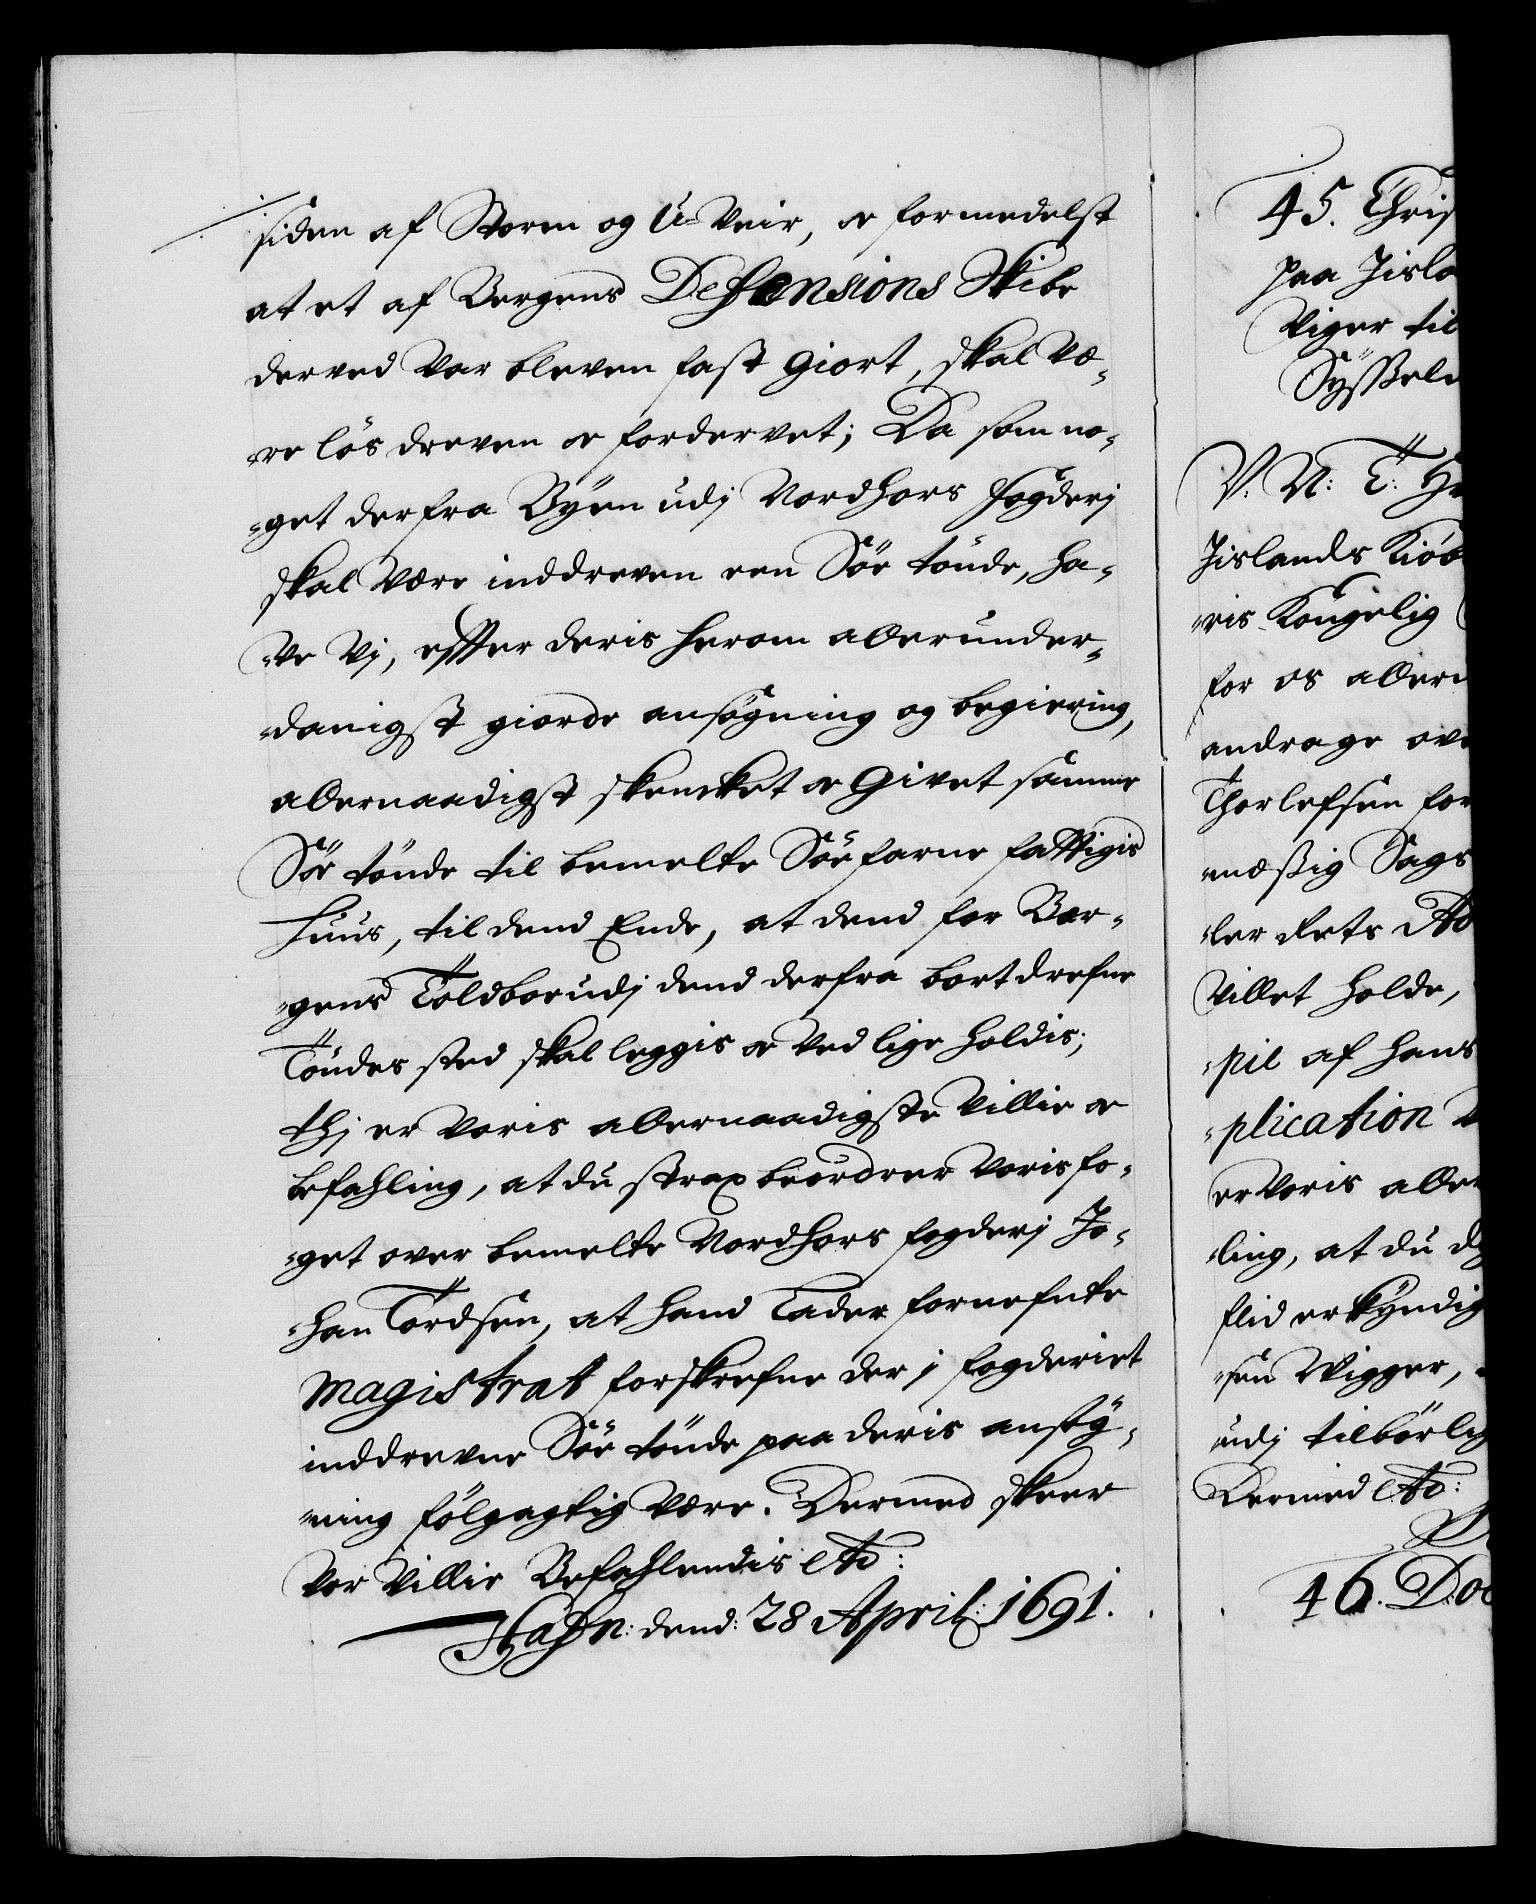 siden af Storm og U-Veir, er formedelst
at et af Bergens Defensions Skibe
derved var bleven fast giort, skal væ-
-re lös dreven er fordervet; Da som no-
-get derfra Byen udj Nordhors fogderj
skal være inddreven een Söe tönde, ha-
-ve Vj, efter deris herom allerunder-
-danigst giorde ansögning og begiering,
allernaadigst skencket er Givet samme
Söe tönde til bemelte Söefarne fattigis
Huus, til dend Ende, at dend for Ber-
-gens Toldboe udj dend derfra bortdrefne
Töndes sted skal leggis er ved lige holdis;
thj er Voris allernaadigste Villie er
befahling, at du strax beordrer Voris fo-
-get over bemelte Nordhors fogderj Jo-
-han Tordsen, at hand Lader fornefnte
Magistrat forskrefne der j fogderiet
inddrevne Söe tönde paa deris ansög-
-ning fölgagtig være. Dermed skeer
Vor Villie Befahlendis etc:
Hafn: dend: 28 April: 1691.
45. Chris
paa Jisla
Viger til
Sysselm
V: N: T: Hr
Jislands Kiöb
-ris Kongelig
for os allern
andrage ov
Thorlefsen for
-mæssig Sags
-ler dets
Villet holde,
-pie af hans
-plication
er Voris aller
-ling, at du
flid erkyndig
-sen Vigger,
udj tilbörlig
Dermed etc:
46. Doc